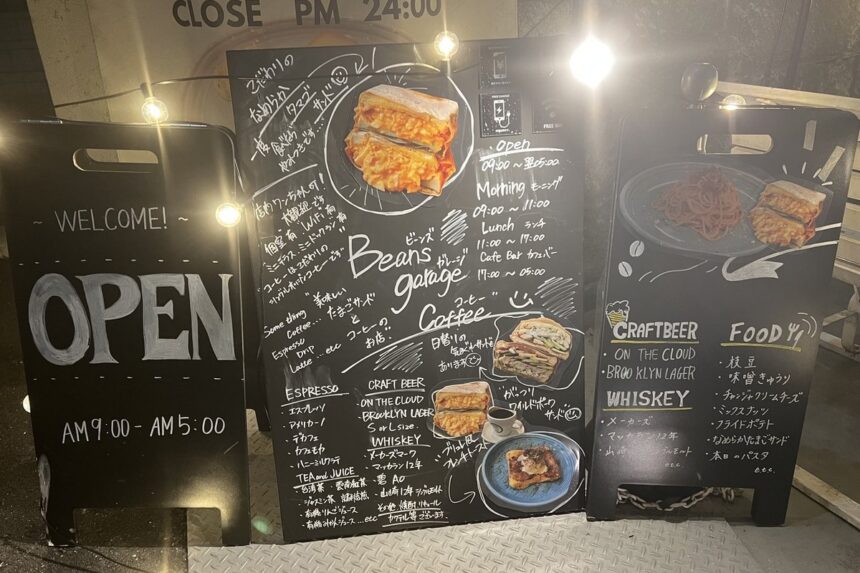 CLOSE PM 24:00
~ WELCOME! ~
OPEN
AM 9:00 - AM 5:00
こだわりの
なめらか
タマゴ
サンド
一度食べたら
やみつきです…
わんちゃんOK!
大歓迎です
個室有 WiFi有
コーヒーはこだわりの
Something
Coffee...
Espresso
Drip
Latte ... etc
美味しい
たまごサンド
と
コーヒーの
お店
ビーンズ
Beans
ガレージ
garage
コーヒー
Coffee
日替りの
Open
09:00 ~ 翌05:00
Morning モーニング
09:00 ~ 11:00
Lunch ランチ
11:00 ~ 17:00
Cafe Bar カフェバー
17:00 ~ 05:00
がっつり
ワイルドポーク
サンド
ブリュレ風
フレンチトースト
ESPRESSO
エスプレッソ
アメリカーノ
デカフェ
カフェモカ
ハニーミルクラテ
TEA and JUICE
台湾茶
ジャスミン茶
有機りんごジュース
有機みかんジュース ...etc
CRAFT BEER
ON THE CLOUD
BROOKLYN LAGER
S or L size
WHISKEY
メーカーズマーク
マッカラン12年
碧 AO
山崎12年 シングルモルト
その他 焼酎 リキュール
カクテル等ございます
CRAFT BEER
・ON THE CLOUD
・BROOKLYN LAGER
WHISKEY
・メーカーズ
・マッカラン12年
・山崎
etc.
FOOD
・枝豆
・味噌きゅうり
・チャンジャクリームチーズ
・ミックスナッツ
・フライドポテト
・なめらかたまごサンド
・本日のパスタ
etc.